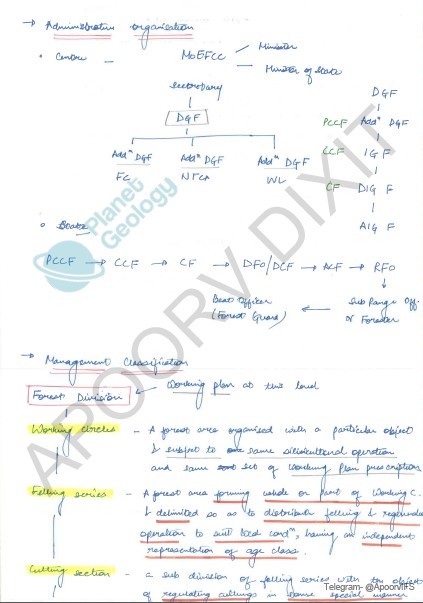 → Administrative organisation
• Centre — MoEFCC Minister
Minister of State
Secretary
DGF
Addⁿ DGF Addⁿ DGF Addⁿ DGF
FC NTCA WL
DGF
PCCF Addⁿ DGF
CCF IGF
CF DIG F
AIG F
• State
PCCF → CCF → CF → DFO/DCF → ACF → RFO
Beat Officer ← Sub Range Off.
(Forest Guard) or Forester
→ Management Classification
Forest Division ← Working plan at this level
Working circles - A forest area organised with a particular object
& subject to same silvicultural operation
and same set of Working Plan prescription
Felling series - A forest area forming whole or part of Working C.
& delimited so as to distribute felling & regeneration
operation to suit local condⁿ, having an independent
representation of age class.
Cutting section - a sub division of felling series with the object
of regulating cuttings in some special manner
Planet
Geology
APOORV DIXIT
Telegram- @ApoorvIFS